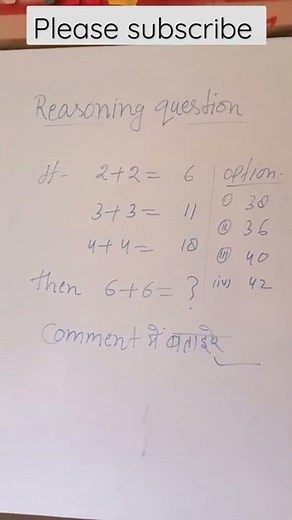 Please subscribe
Reasoning question
If- 2+2= 6 option-
3+3= 11 (i) 38
4+4= 18 (ii) 36
(iii) 40
then 6+6= ? (iv) 42
Comment में बताइरे